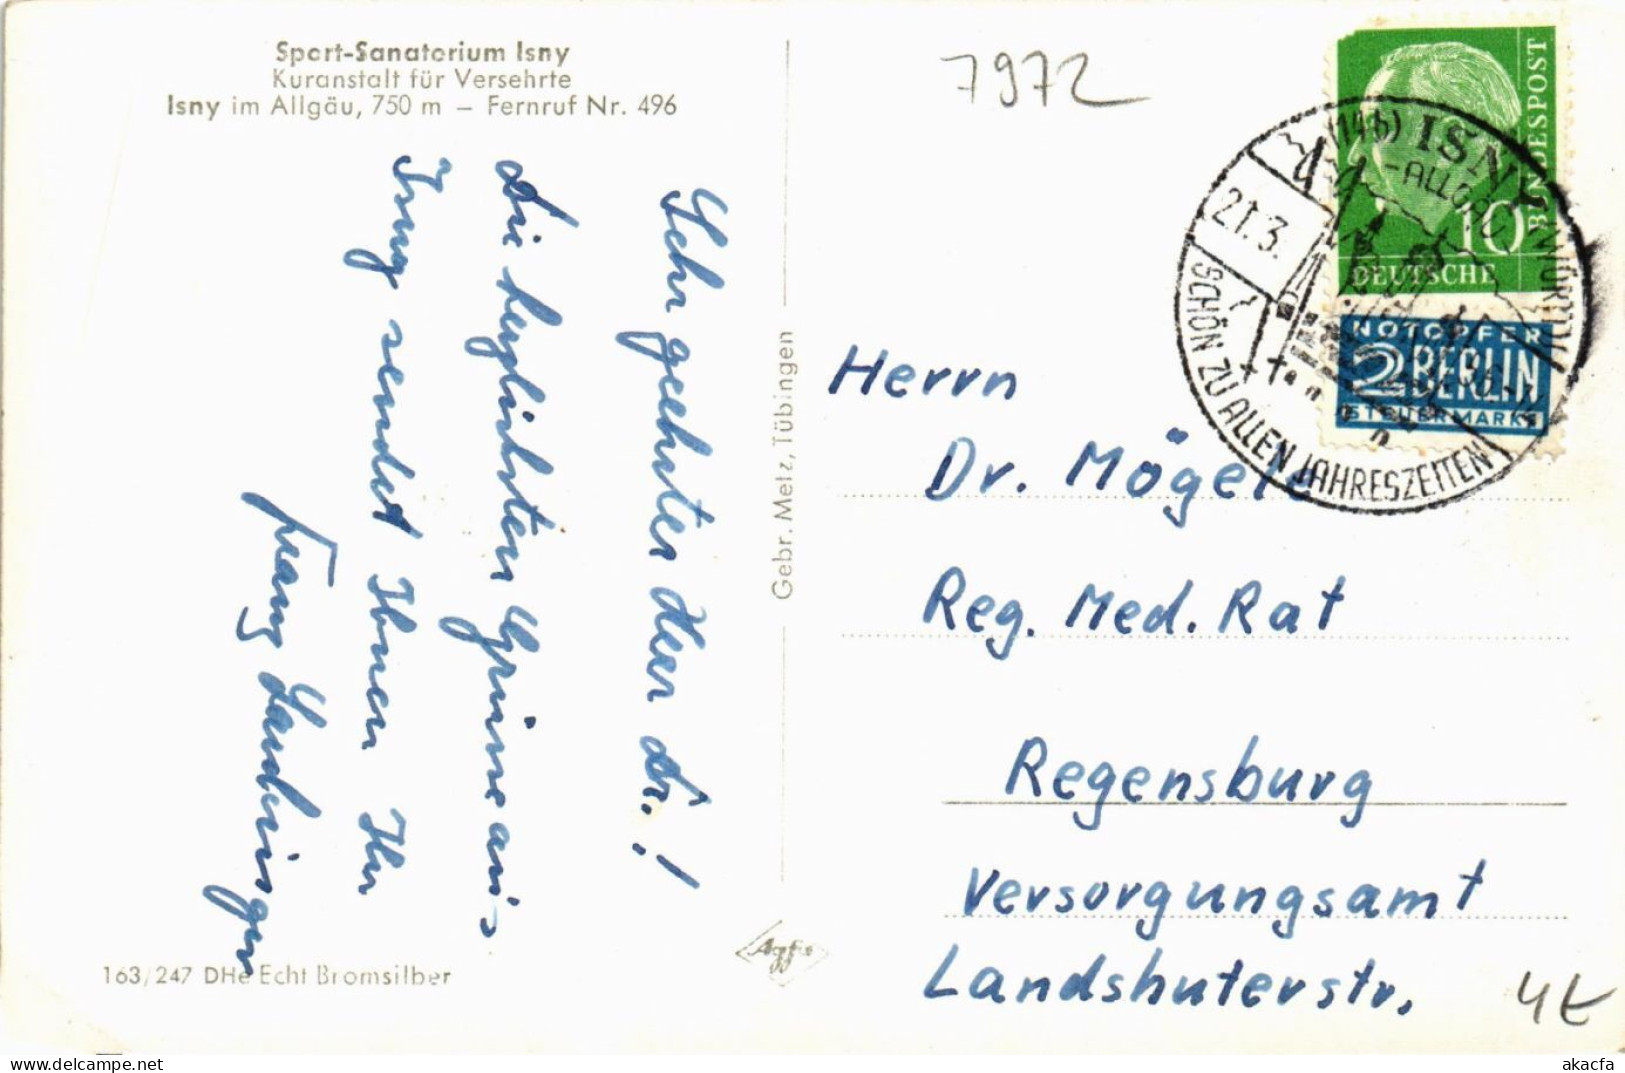 Sport-Sanatorium Isny
Kuranstalt für Versehrte
Isny im Allgäu, 750 m – Fernruf Nr. 496
Sehr geehrter Herr Dr.!
Die herzlichsten Grüsse aus
Isny sendet Ihnen Ihr
Franz
163/247 DHe Echt Bromsilber
Gebr. Metz, Tübingen
Agfa
7972
DEUTSCHE
BUNDESPOST
10
NOTOPFER
2 BERLIN
STEUERMARKE
(14b) ISNY
-ALLGÄU
21.3.
SCHÖN ZU ALLEN JAHRESZEITEN
Herrn
Dr. Mögele
Reg. Med. Rat
Regensburg
Versorgungsamt
Landshuterstr.
4t
akacfa